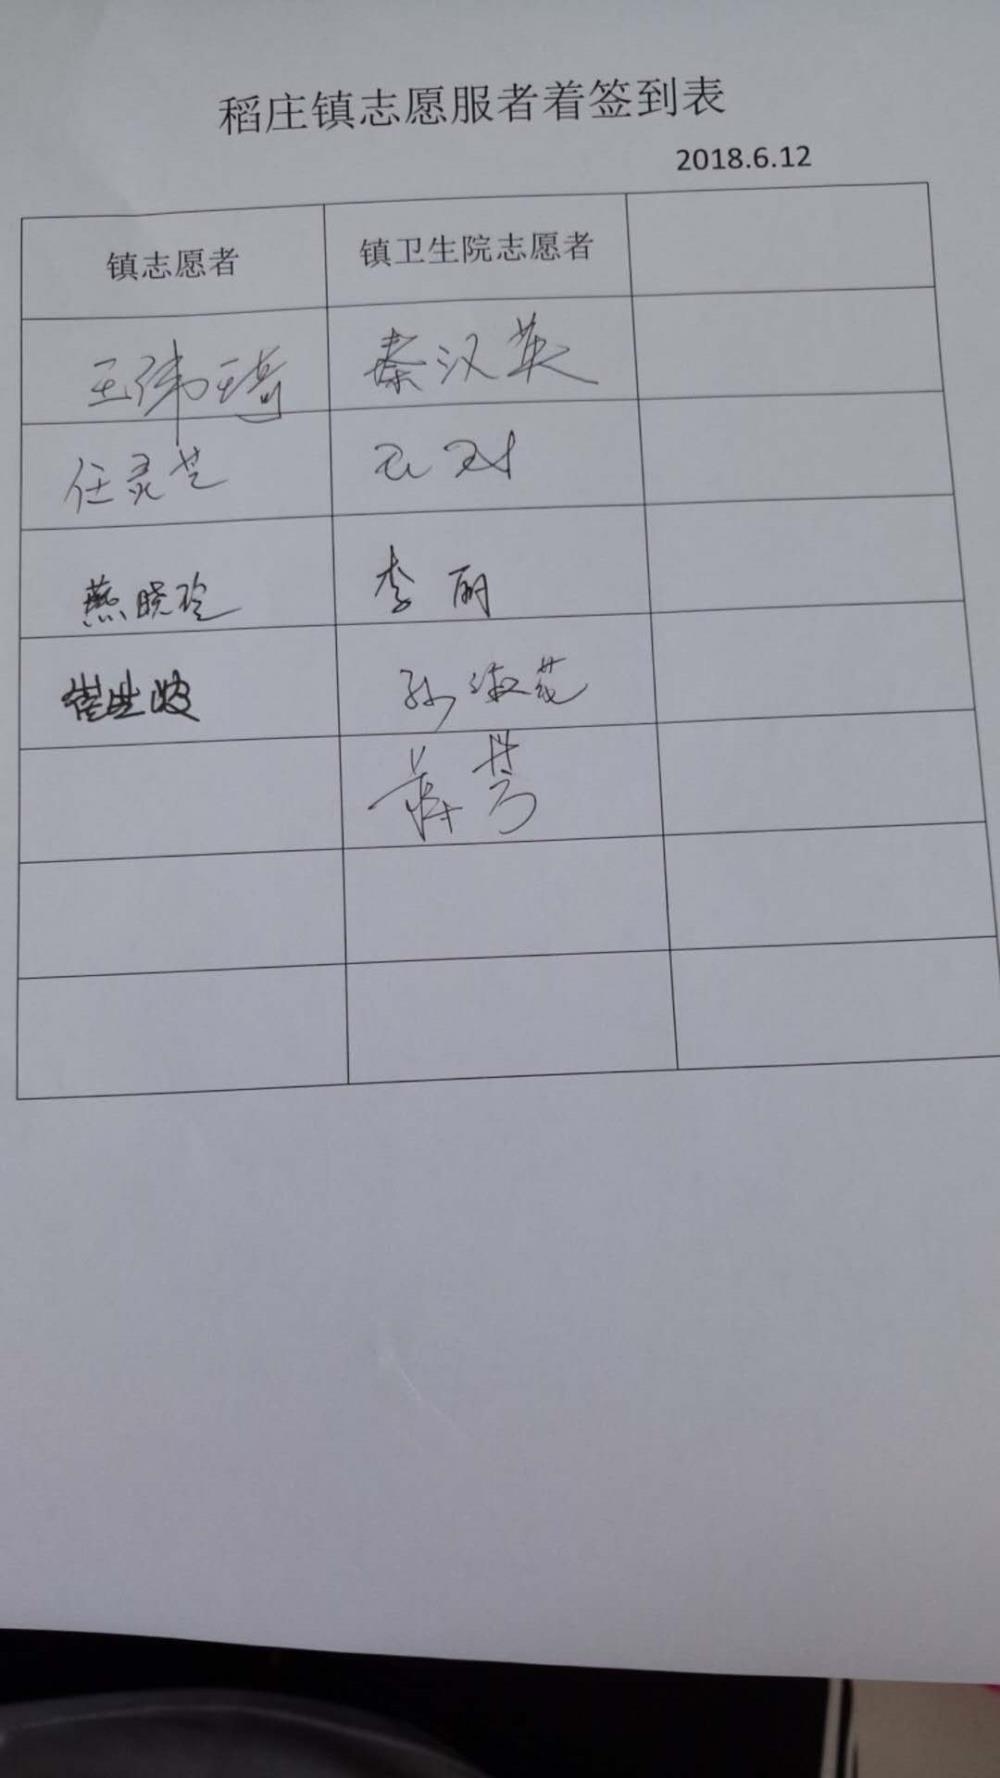 稻庄镇志愿服者着签到表
2018.6.12
镇志愿者 镇卫生院志愿者
王玮琦 秦汉英
任灵芝
燕晓玲 李丽
孙淑花
薛芳